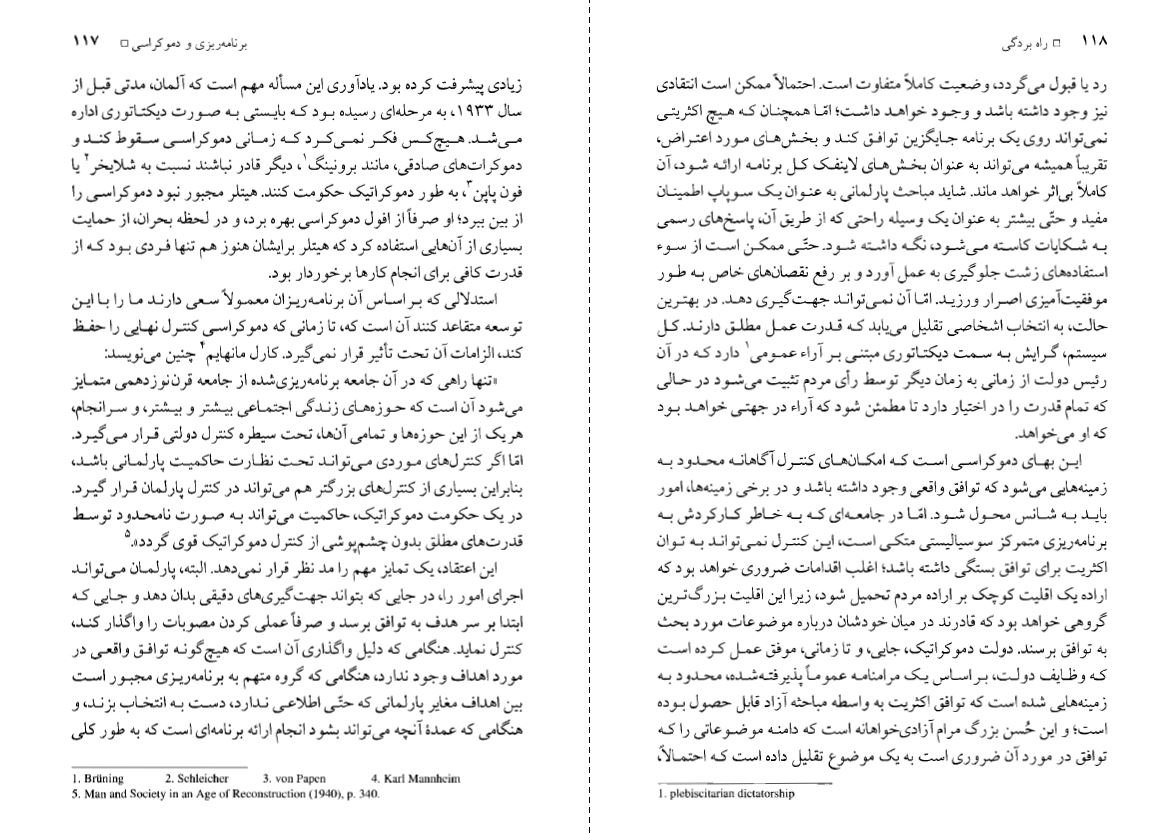 برنامه‌ریزی و دموکراسی □ ۱۱۷
زیادی پیشرفت کرده بود. یادآوری این مسأله مهم است که آلمان، مدتی قبل از
سال ۱۹۳۳، به مرحله‌ای رسیده بود که بایستی به صورت دیکتاتوری اداره
می‌شد. هیچ‌کس فکر نمی‌کرد که زمانی دموکراسی سقوط کند و
دموکرات‌های صادقی، مانند برونینگ۱، دیگر قادر نباشند نسبت به شلایخر۲ یا
فون پاپن۳، به طور دموکراتیک حکومت کنند. هیتلر مجبور نبود دموکراسی را
از بین ببرد؛ او صرفاً از افول دموکراسی بهره برد، و در لحظه بحران، از حمایت
بسیاری از آن‌هایی استفاده کرد که هیتلر برایشان هنوز هم تنها فردی بود که از
قدرت کافی برای انجام کارها برخوردار بود.
استدلالی که بر اساس آن برنامه‌ریزان معمولاً سعی دارند ما را با این
توسعه متقاعد کنند آن است که، تا زمانی که دموکراسی کنترل نهایی را حفظ
کند، الزامات آن تحت تأثیر قرار نمی‌گیرد. کارل مانهایم۴ چنین می‌نویسد:
«تنها راهی که در آن جامعه برنامه‌ریزی‌شده از جامعه قرن نوزدهمی متمایز
می‌شود آن است که حوزه‌های زندگی اجتماعی بیشتر و بیشتر، و سرانجام،
هر یک از این حوزه‌ها و تمامی آن‌ها، تحت سیطره کنترل دولتی قرار می‌گیرد.
امّا اگر کنترل‌های موردی می‌تواند تحت نظارت حاکمیت پارلمانی باشد،
بنابراین بسیاری از کنترل‌های بزرگتر هم می‌تواند در کنترل پارلمان قرار گیرد.
در یک حکومت دموکراتیک، حاکمیت می‌تواند به صورت نامحدود توسط
قدرت‌های مطلق بدون چشم‌پوشی از کنترل دموکراتیک قوی گردد».۵
این اعتقاد، یک تمایز مهم را مد نظر قرار نمی‌دهد. البته، پارلمان می‌تواند
اجرای امور را، در جایی که بتواند جهت‌گیری‌های دقیقی بدان دهد و جایی که
ابتدا بر سر هدف به توافق برسد و صرفاً عملی کردن مصوبات را واگذار کند،
کنترل نماید. هنگامی که دلیل واگذاری آن است که هیچ‌گونه توافق واقعی در
مورد اهداف وجود ندارد، هنگامی که گروه متهم به برنامه‌ریزی مجبور است
بین اهداف مغایر پارلمانی که حتّی اطلاعی ندارد، دست به انتخاب بزند، و
هنگامی که عمدهٔ آنچه می‌تواند بشود انجام ارائه برنامه‌ای است که به طور کلی
1. Brüning 2. Schleicher 3. von Papen 4. Karl Mannheim
5. Man and Society in an Age of Reconstruction (1940), p. 340.
۱۱۸ □ راه بردگی
رد یا قبول می‌گردد، وضعیت کاملاً متفاوت است. احتمالاً ممکن است انتقادی
نیز وجود داشته باشد و وجود خواهد داشت؛ امّا همچنان که هیچ اکثریتی
نمی‌تواند روی یک برنامه جایگزین توافق کند و بخش‌های مورد اعتراض،
تقریباً همیشه می‌تواند به عنوان بخش‌های لاینفک کل برنامه ارائه شود، آن
کاملاً بی‌اثر خواهد ماند. شاید مباحث پارلمانی به عنوان یک سوپاپ اطمینان
مفید و حتّی بیشتر به عنوان یک وسیله راحتی که از طریق آن، پاسخ‌های رسمی
به شکایات کاسته می‌شود، نگه داشته شود. حتّی ممکن است از سوء
استفاده‌های زشت جلوگیری به عمل آورد و بر رفع نقصان‌های خاص به طور
موفقیت‌آمیزی اصرار ورزید. امّا آن نمی‌تواند جهت‌گیری دهد. در بهترین
حالت، به انتخاب اشخاصی تقلیل می‌یابد که قدرت عمل مطلق دارند. کل
سیستم، گرایش به سمت دیکتاتوری مبتنی بر آراء عمومی۱ دارد که در آن
رئیس دولت از زمانی به زمان دیگر توسط رأی مردم تثبیت می‌شود در حالی
که تمام قدرت را در اختیار دارد تا مطمئن شود که آراء در جهتی خواهد بود
که او می‌خواهد.
این بهای دموکراسی است که امکان‌های کنترل آگاهانه محدود به
زمینه‌هایی می‌شود که توافق واقعی وجود داشته باشد و در برخی زمینه‌ها، امور
باید به شانس محول شود. امّا در جامعه‌ای که به خاطر کارکردش به
برنامه‌ریزی متمرکز سوسیالیستی متکی است، این کنترل نمی‌تواند به توان
اکثریت برای توافق بستگی داشته باشد؛ اغلب اقدامات ضروری خواهد بود که
اراده یک اقلیت کوچک بر اراده مردم تحمیل شود، زیرا این اقلیت بزرگ‌ترین
گروهی خواهد بود که قادرند در میان خودشان درباره موضوعات مورد بحث
به توافق برسند. دولت دموکراتیک، جایی، و تا زمانی، موفق عمل کرده است
که وظایف دولت، بر اساس یک مرامنامه عموماً پذیرفته‌شده، محدود به
زمینه‌هایی شده است که توافق اکثریت به واسطه مباحثه آزاد قابل حصول بوده
است؛ و این حُسن بزرگ مرام آزادی‌خواهانه است که دامنه موضوعاتی را که
توافق در مورد آن ضروری است به یک موضوع تقلیل داده است که احتمالاً،
1. plebiscitarian dictatorship